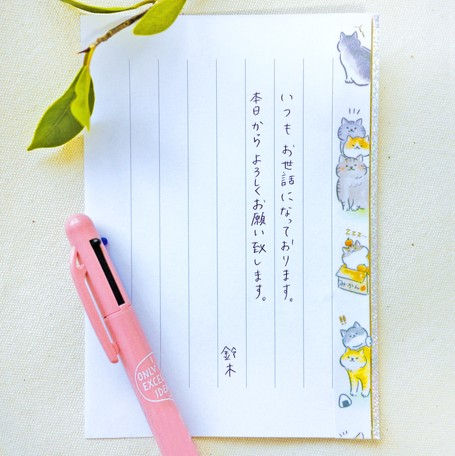 いつも お世話になっております。
本日から よろしくお願い致します。
鈴木
みかん
zzz
!!
ONLY
EXCE
IDE